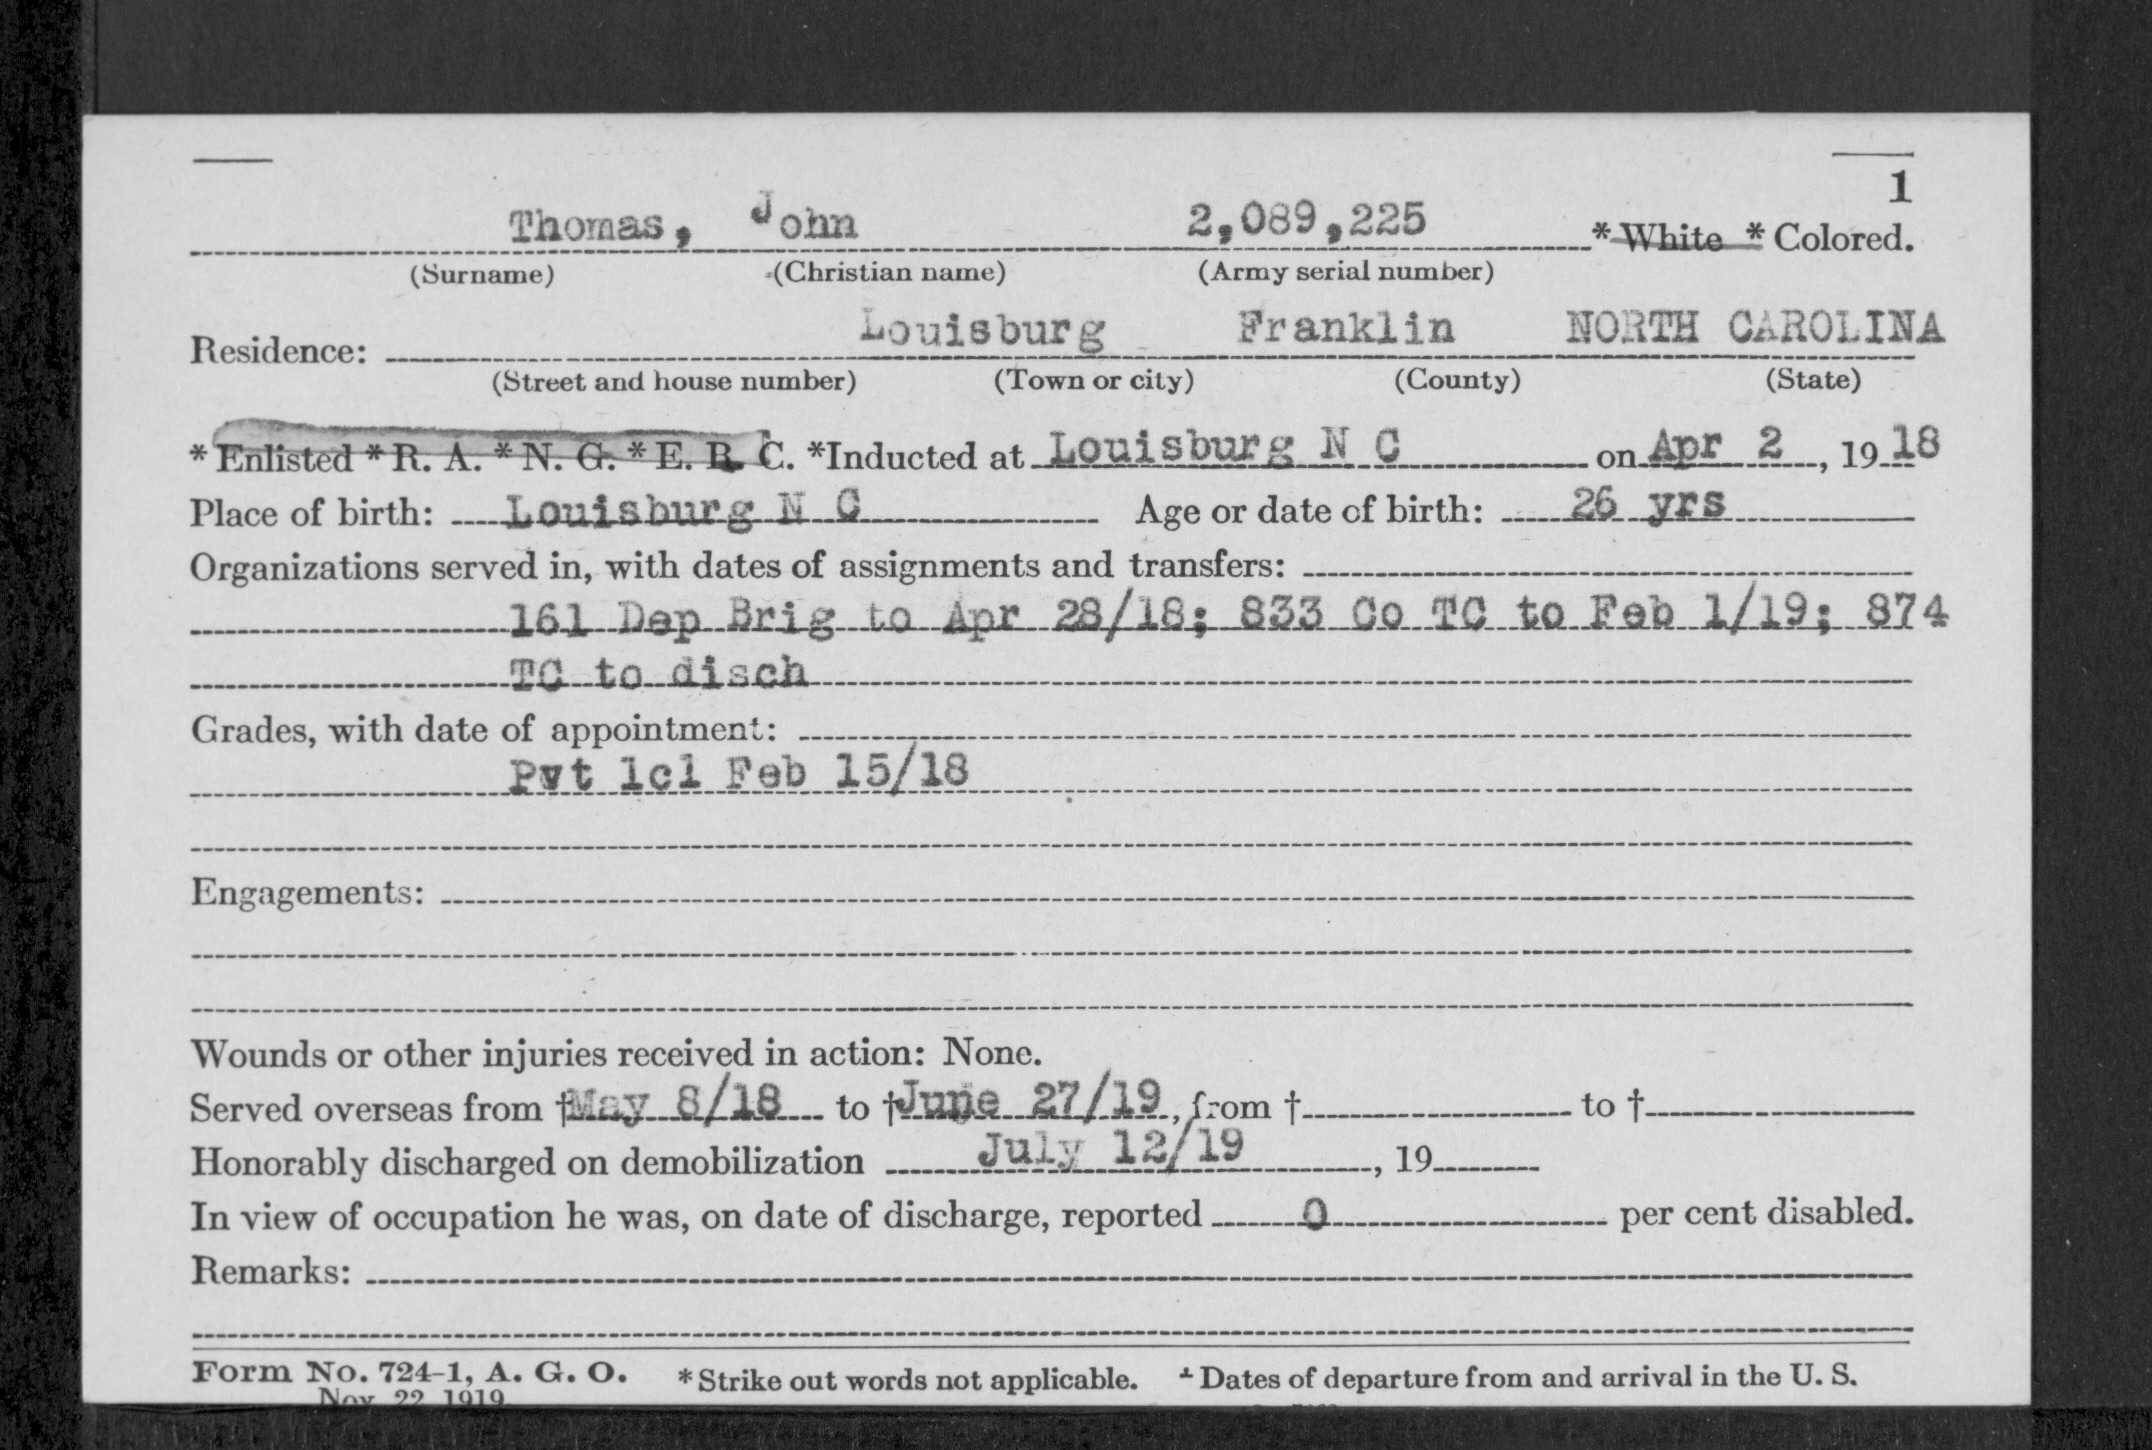 1
Thomas, John 2,089,225 * White * Colored.
(Surname) (Christian name) (Army serial number)
Residence: Louisburg Franklin NORTH CAROLINA
(Street and house number) (Town or city) (County) (State)
* Enlisted * R. A. * N. G. * E. R. C. *Inducted at Louisburg N C on Apr 2, 19 18
Place of birth: Louisburg N C Age or date of birth: 26 yrs
Organizations served in, with dates of assignments and transfers:
161 Dep Brig to Apr 28/18; 833 Co TC to Feb 1/19; 874
TC to disch
Grades, with date of appointment:
Pvt 1cl Feb 15/18
Engagements:
Wounds or other injuries received in action: None.
Served overseas from †May 8/18 to †June 27/19, from † to †
Honorably discharged on demobilization July 12/19, 19
In view of occupation he was, on date of discharge, reported 0 per cent disabled.
Remarks:
Form No. 724-1, A. G. O. * Strike out words not applicable. † Dates of departure from and arrival in the U. S.
Nov. 22, 1919.